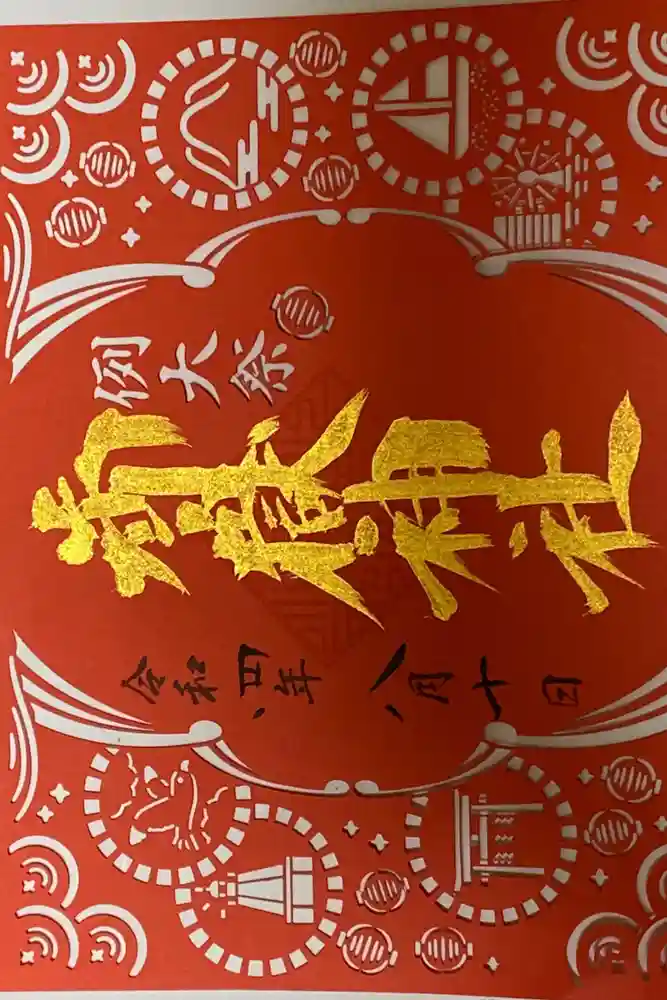 例大祭
神社
令和四年八月十日